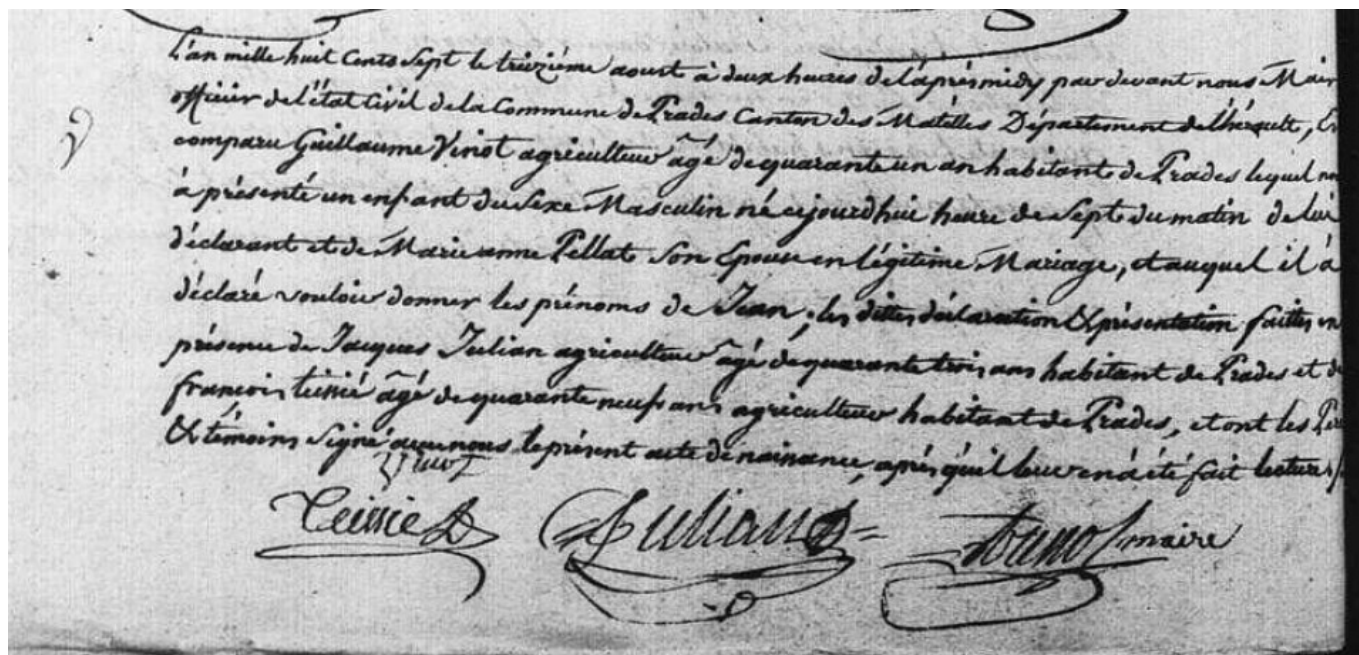 L'an mille huit Cents Sept le treizième aoust à deux heures de l'après midy par devant nous Mair
officier de l'état Civil de la Commune de Prades Canton des Matelles Département de l'hérault, En
comparu Guillaume Vinot agriculteur âgé de quarante un an habitant de Prades lequel no
à présenté un enfant du Sexe Masculin né cejourdhui heure de Sept du matin de lui
déclarant et de Marie anne Pellat Son Epouse en légitime Mariage, et auquel il à
déclaré vouloir donner les prénoms de Jean ; les dittes déclaration & présentation faittes en
présence de Jacques Julian agriculteur âgé de quarante trois ans habitant de Prades et de
francois teissié âgé de quarante neuf ans agriculteur habitant de Prades, et ont les Père
& témoins Signé avec nous le présent acte de naissance, après qu'il leur en a été fait lecture /
Teissie Julian maire